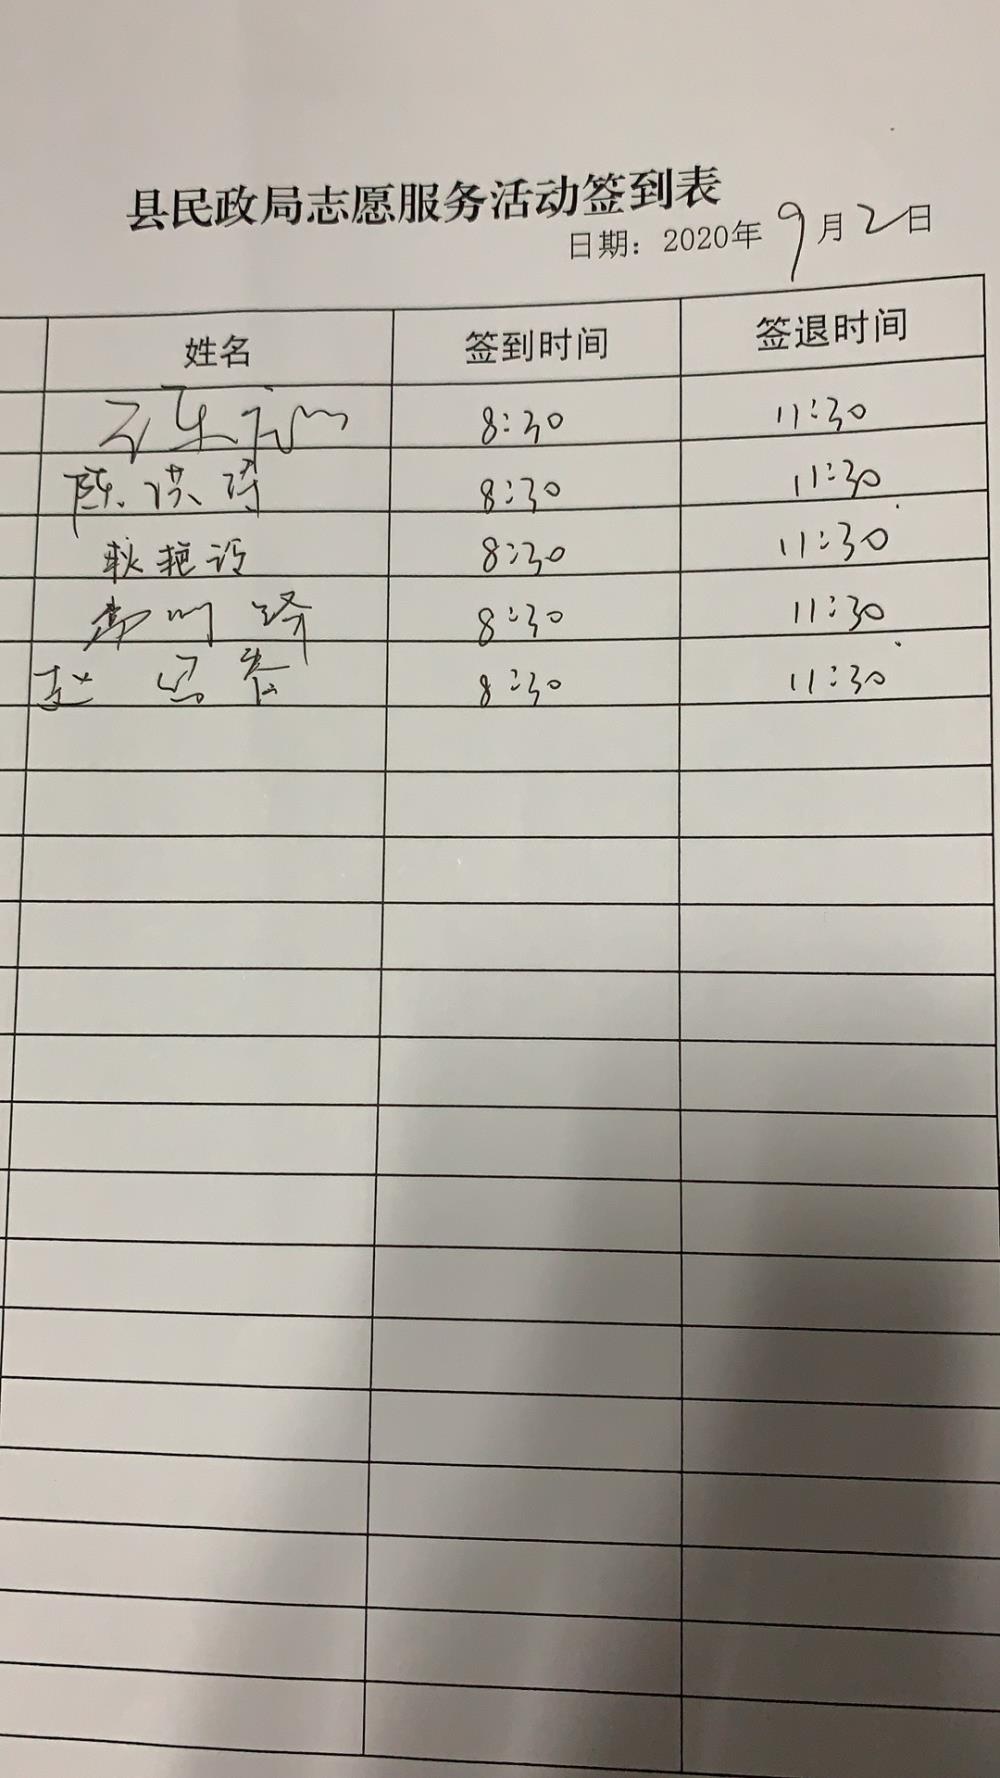 县民政局志愿服务活动签到表
日期：2020年9月2日
姓名 签到时间 签退时间
8:30 11:30
陈洪涛 8:30 11:30
8:30 11:30
8:30 11:30
赵 8:30 11:30